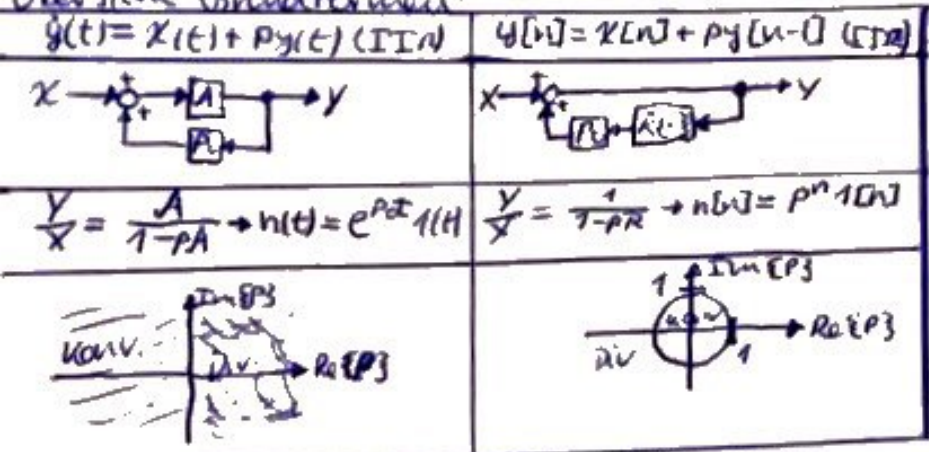 ẏ(t) = x(t) + py(t) (IIR)
y[n] = x[n] + py[n-1] (IIR)
X + + A Y
X + + Y
Y/X = A/(1-pA) → h(t) = e^{pt} 1(t)
Y/X = 1/(1-pR) → h[n] = p^n 1[n]
Im{p}
konv.
Div.
Re{p}
1 Im{p}
Re{p}
Div
1